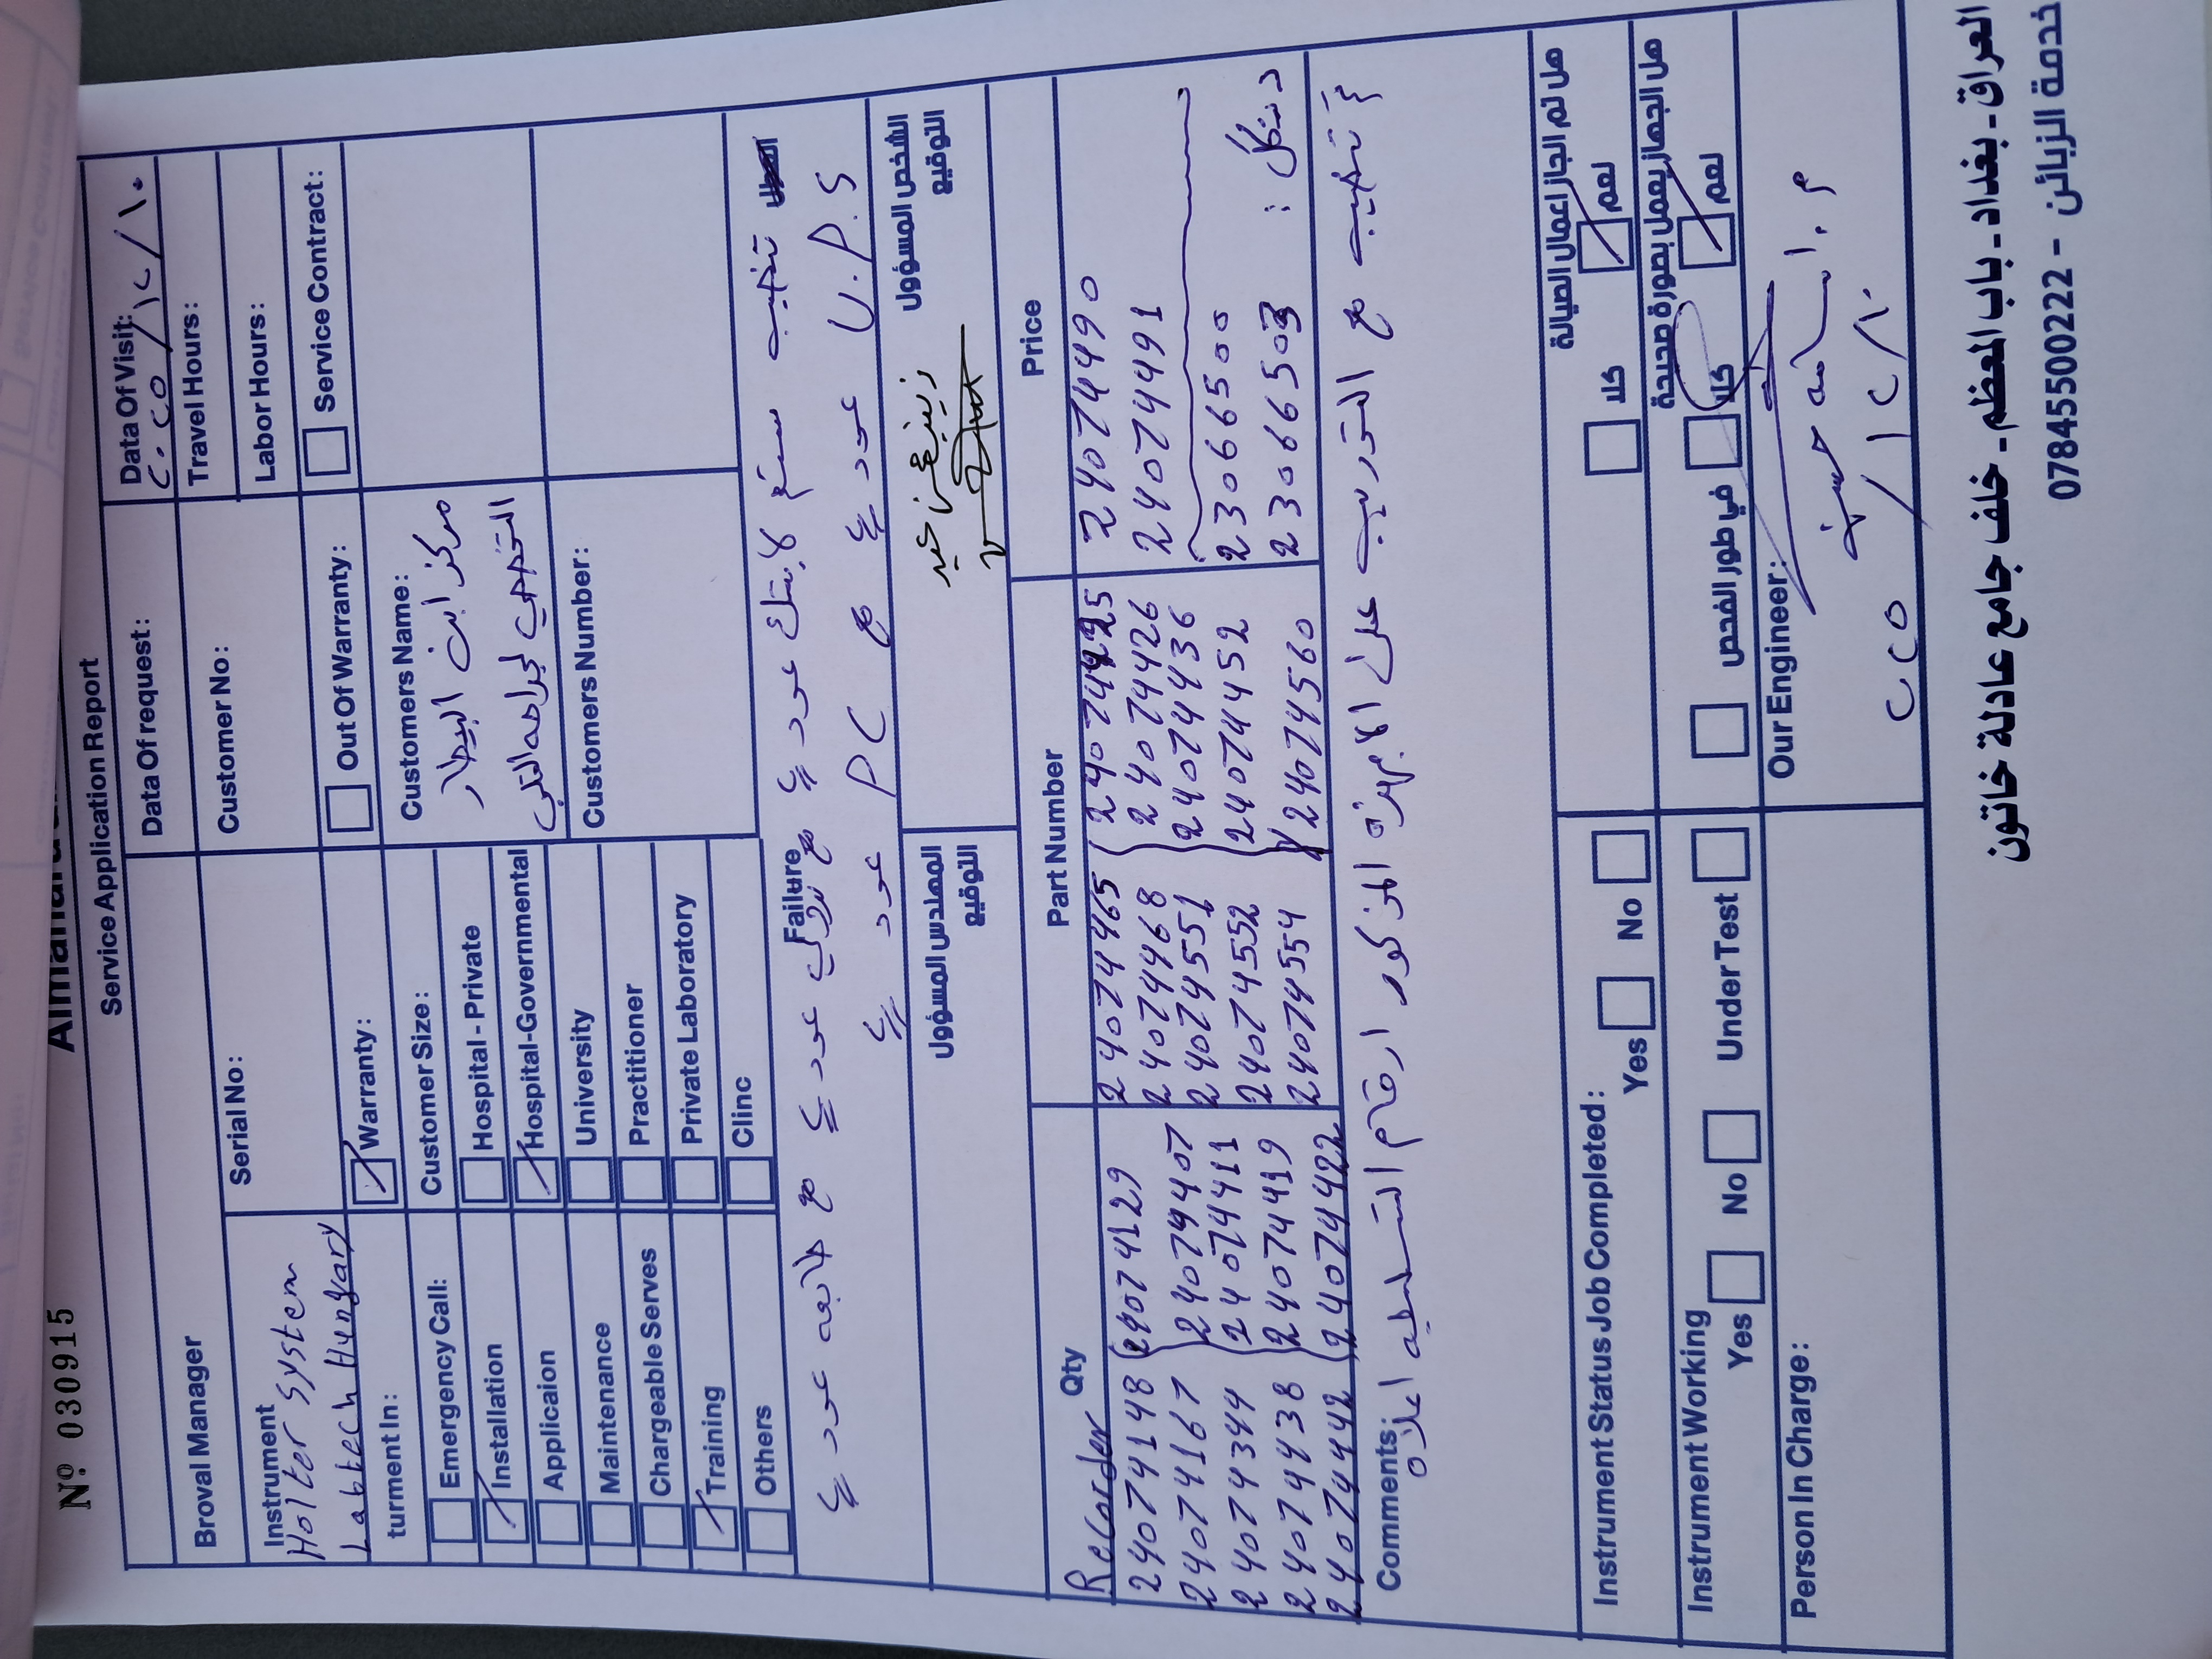 Nº 030915
Service Application Report
Data Of request:
Data Of Visit:
٢٠٢٥/١٢/١٠
Broval Manager
Serial No:
Customer No:
Travel Hours:
Labor Hours:
Instrument
Holter system
Labtech Hungary
Warranty:
Out Of Warranty:
Service Contract:
turment In:
Customer Size:
Customers Name:
مركز ابن البيطار
التخصصي لجراحة القلب
Emergency Call:
Installation
Applicaion
Maintenance
Chargeable Serves
Training
Others
Hospital - Private
Hospital-Governmental
University
Practitioner
Private Laboratory
Clinc
Customers Number:
Failure
تنصيب
لابتك عدد
مع
عدد
مع طابعه عدد
عدد
PC
مع
عدد
U.P.S
المهندس المسؤول
التوقيع
الشخص المسؤول
التوقيع
Qty
Part Number
Price
Recorder
24074148 24074129 24074465 24074425 24074490
24074167 24079407 24074468 24074426 24074491
24074344 24074411 24074551 24074436
24074438 24074419 24074552 24074452 23066500
24074442 24074422 24074554 24074560 23066503
Comments:
تم تنصيب مع التدريب على الاجهزة المذكور ارقام التسلسليه اعلاه
Instrument Status Job Completed:
Yes
No
هل تم الجاز اعمال الصيالة
كلا
لعم
Instrument Working
Yes
No
Under Test
هل الجهاز يعمل بصورة صحيحة
في طور الفحص
كلا
لعم
Person In Charge:
Our Engineer:
م. اسامه حسن
١٢/١٠
العراق - بغداد - باب المعظم - خلف جامع مرداد خاتون
خدمة الزبائن - 07845500222